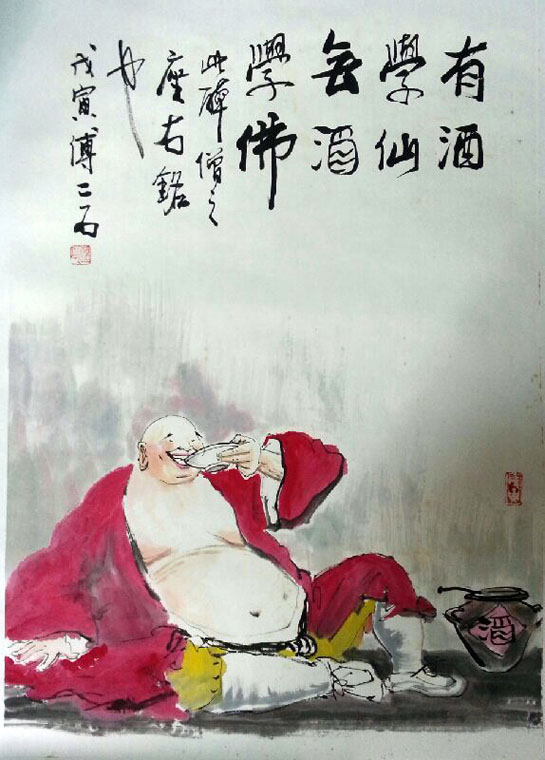 有酒
學仙
無酒
學佛
此醉僧之
座右銘
也
戊寅傅二石
酒